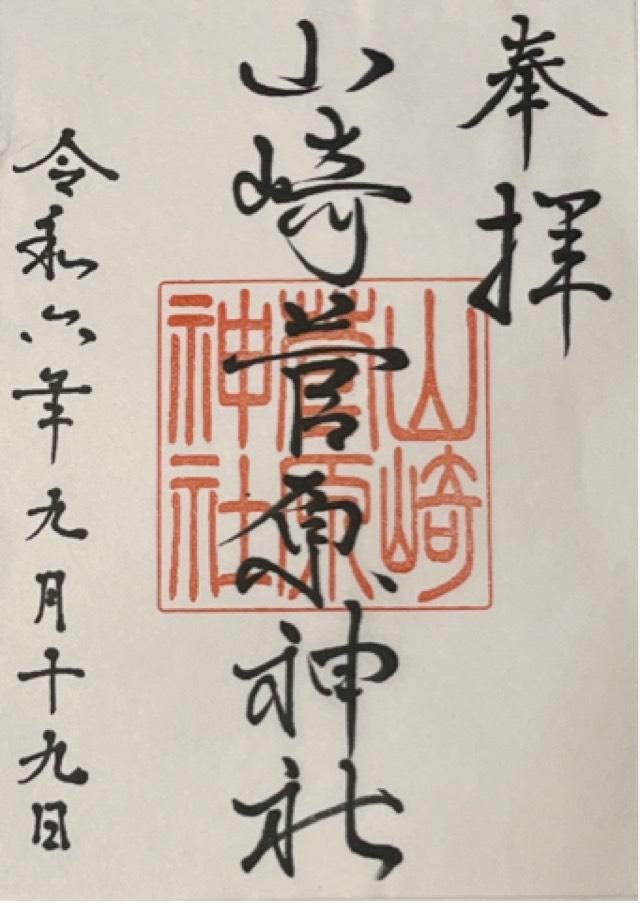 奉拝
山崎菅原神社
山崎
菅原
神社
令和六年九月十九日